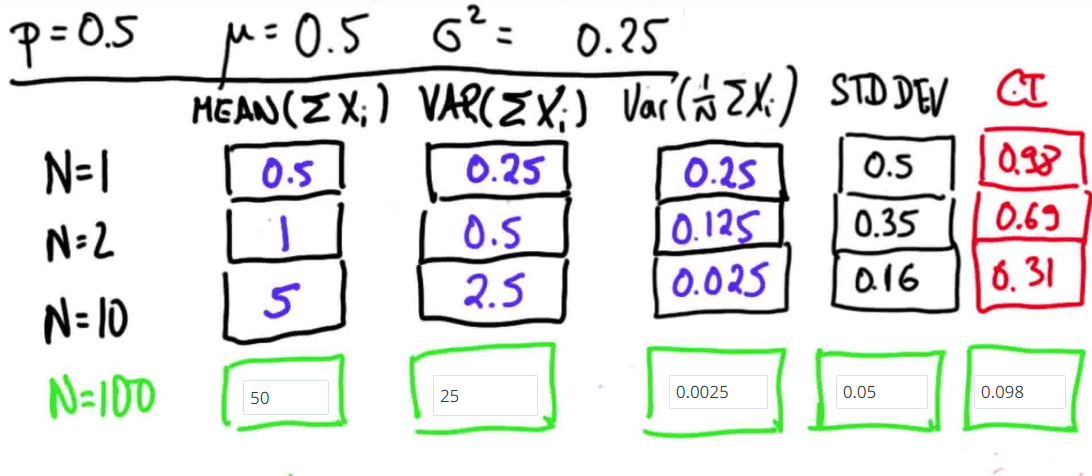 p = 0.5 μ = 0.5 σ² = 0.25
MEAN(Σ Xi) VAR(Σ Xi) Var(1/N Σ Xi) STD DEV CI
N=1 0.5 0.25 0.25 0.5 0.98
N=2 1 0.5 0.125 0.35 0.69
N=10 5 2.5 0.025 0.16 0.31
N=100 50 25 0.0025 0.05 0.098